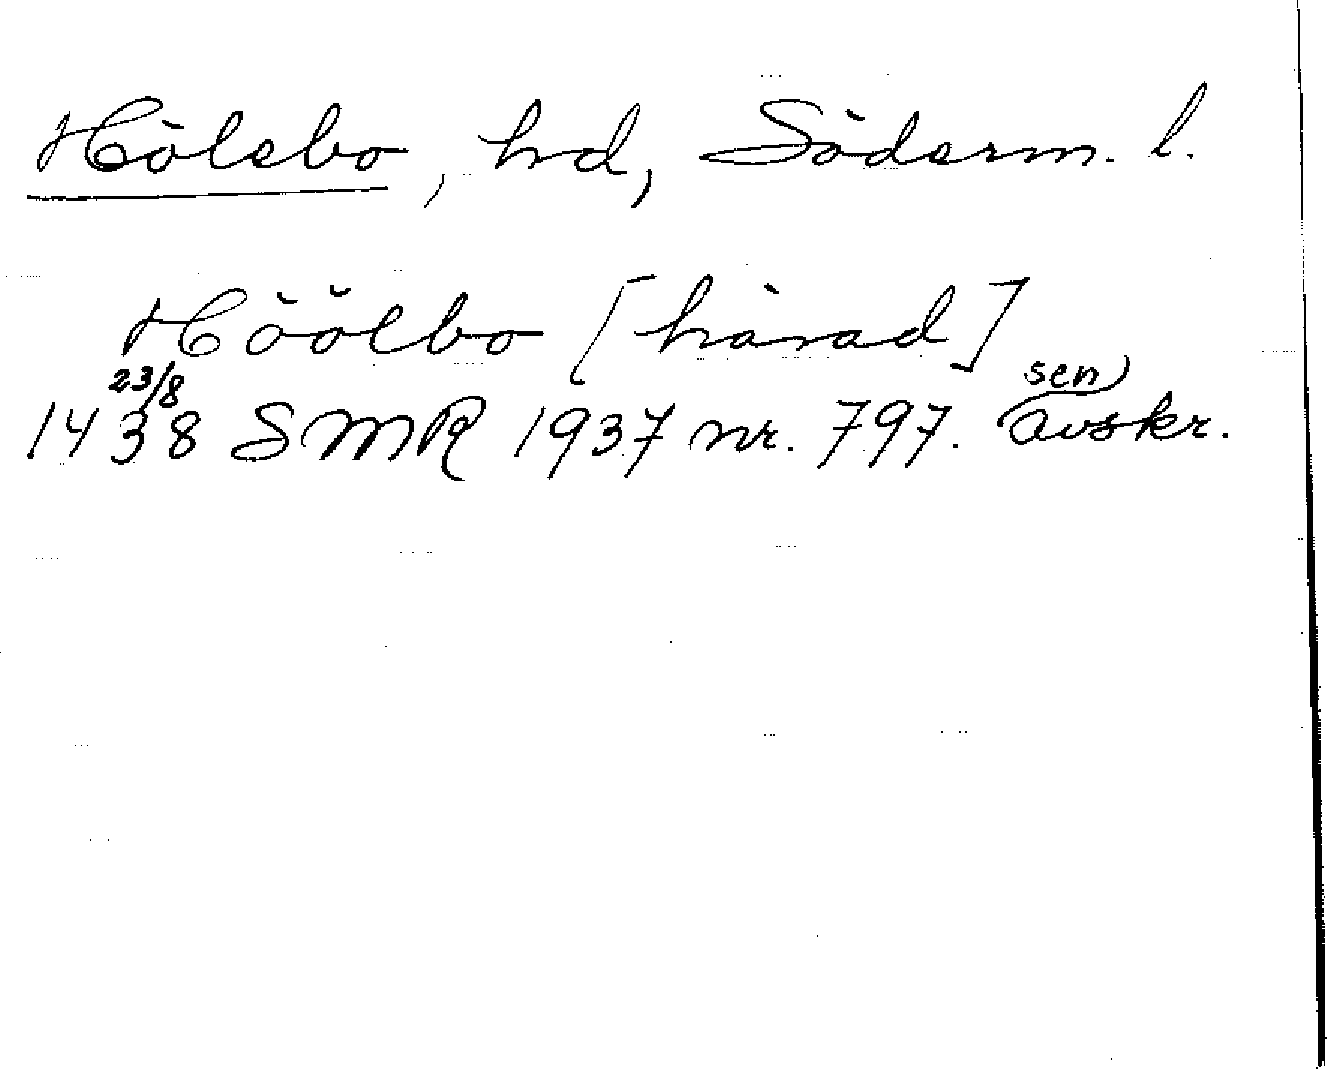 Hölebo, hd, Söderm. l.
Höölbo [härad]
23/8 sen
1438 SMR 1937 nr. 797. avskr.